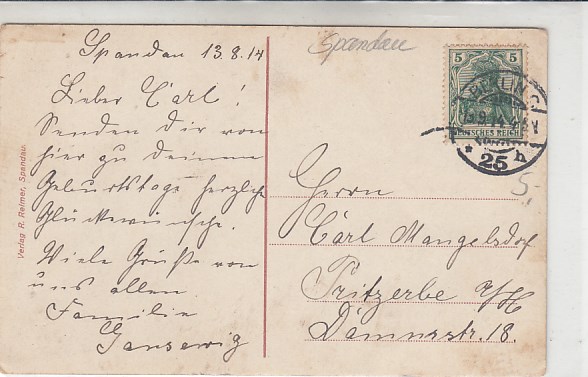 Spandau 13.8.14
Lieber Carl!
Senden dir von
hier zu deinem
Geburtstage herzliche
Glückwünsche.
Viele Grüße von
uns allen
Familie
Gansewig
Verlag R. Reimer, Spandau.
Spandau
5 5
DEUTSCHES REICH
BERLIN C
25 h
5-
Herrn
Carl Mangelsdorf
Pritzerbe a/H
Dammstr. 18.